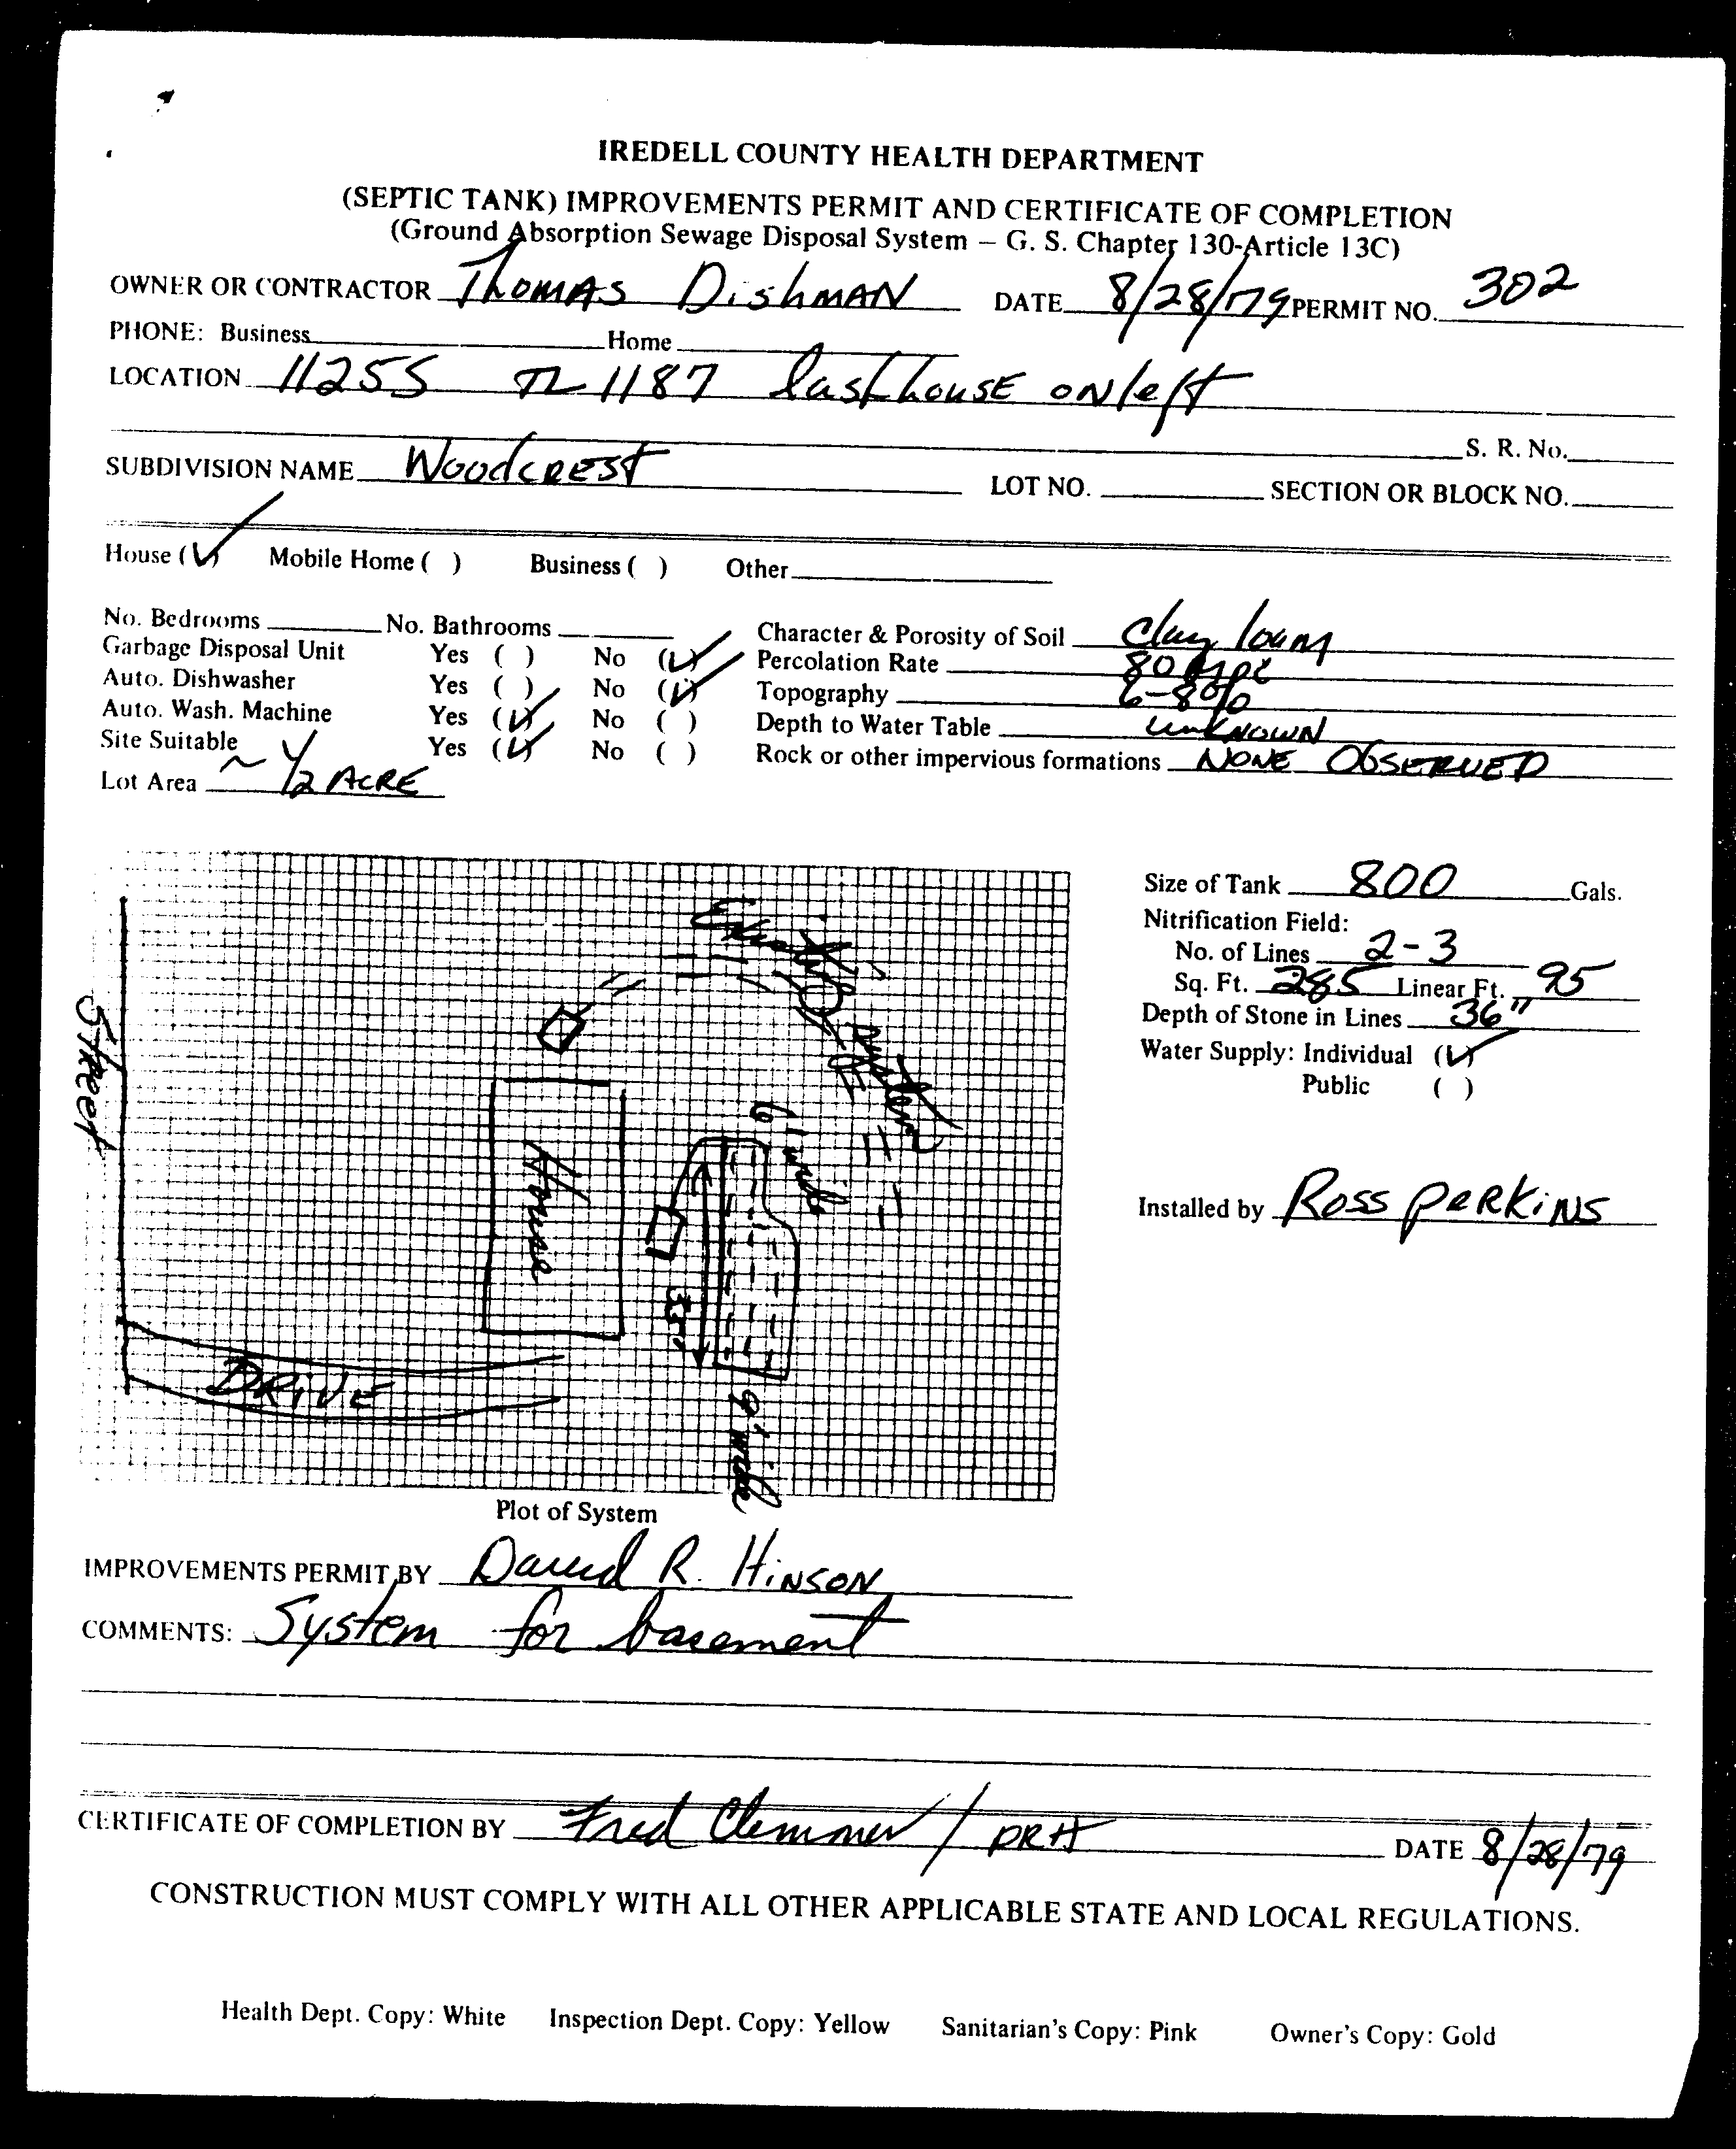 IREDELL COUNTY HEALTH DEPARTMENT
(SEPTIC TANK) IMPROVEMENTS PERMIT AND CERTIFICATE OF COMPLETION
(Ground Absorption Sewage Disposal System – G. S. Chapter 130-Article 13C)
OWNER OR CONTRACTOR Thomas Dishman DATE 8/28/79 PERMIT NO. 302
PHONE: Business Home
LOCATION 1125S TL 1187 last house on left
S. R. No.
SUBDIVISION NAME Woodcrest LOT NO. SECTION OR BLOCK NO.
House (✓) Mobile Home ( ) Business ( ) Other
No. Bedrooms No. Bathrooms Character & Porosity of Soil clay loam
Garbage Disposal Unit Yes ( ) No (✓) Percolation Rate 80 mpi
Auto. Dishwasher Yes ( ) No (✓) Topography 6-8%
Auto. Wash. Machine Yes (✓) No ( ) Depth to Water Table unknown
Site Suitable Yes (✓) No ( ) Rock or other impervious formations NONE OBSERVED
Lot Area ~ 1/2 ACRE
Size of Tank 800 Gals.
Nitrification Field:
No. of Lines 2-3
Sq. Ft. 285 Linear Ft. 95
Depth of Stone in Lines 36"
Water Supply: Individual (✓)
Public ( )
Installed by Ross Perkins
Existing system
Street
House
6' wide
35'
9' wide
DRIVE
Plot of System
IMPROVEMENTS PERMIT BY David R. Hinson
COMMENTS: System for basement
CERTIFICATE OF COMPLETION BY Fred Clemmer / DRH DATE 8/28/79
CONSTRUCTION MUST COMPLY WITH ALL OTHER APPLICABLE STATE AND LOCAL REGULATIONS.
Health Dept. Copy: White Inspection Dept. Copy: Yellow Sanitarian's Copy: Pink Owner's Copy: Gold